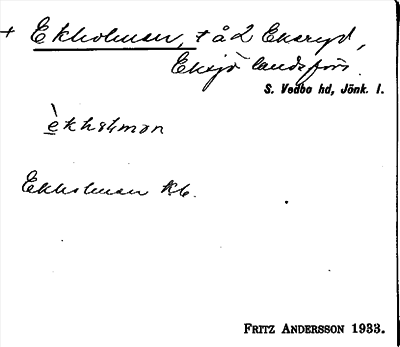 + Ekholman, + å 2 Eksryd,
Eksjö landsförs.
S. Vedbo hd, Jönk. l.
èkhɷlman
Ekholman Kb.
FRITZ ANDERSSON 1933.